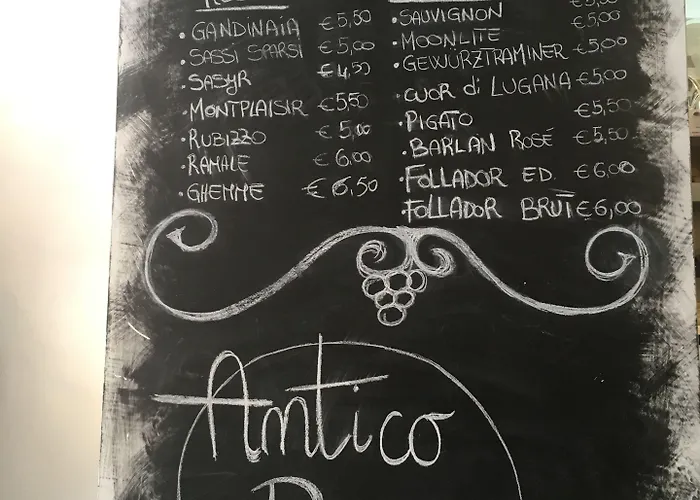 GANDINAIA €5,50
SASSI SPARSI €5,00
SASYR €4,50
MONTPLAISIR €5,50
RUBIZZO €5,00
RAMALE €6,00
GHEMME €6,50
SAUVIGNON
MOONLITE €5,00
GEWÜRZTRAMINER €5,00
CUOR di LUGANA €5,00
PIGATO €5,50
BARLAN ROSÉ €5,50
FOLLADOR ED. €6,00
FOLLADOR BRUT €6,00
Antico